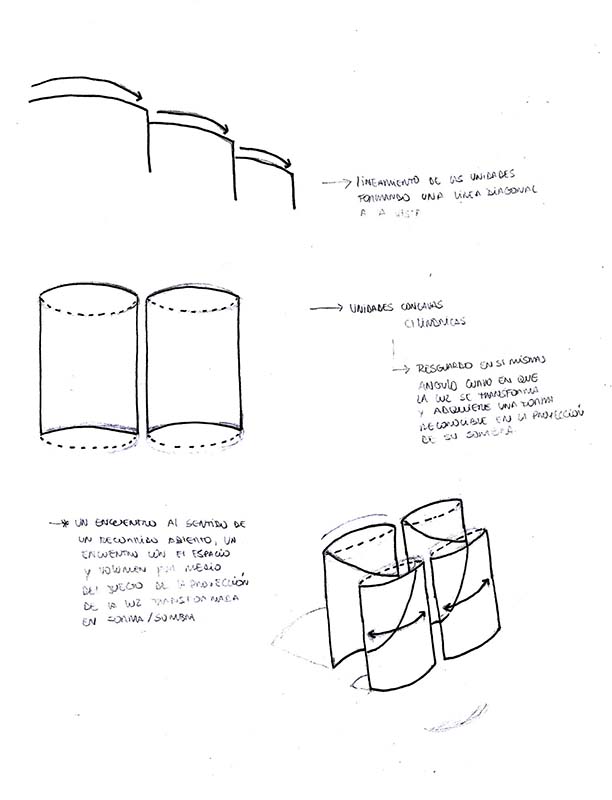 → LINEAMIENTO DE LAS UNIDADES
FORMANDO UNA LÍNEA DIAGONAL
A A VISTA
→ UNIDADES CONCAVAS
CILÍNDRICAS
→ RESGUARDO EN SI MISMO
ANGULO CURVO EN QUE
LA LUZ SE TRANSFORMA
Y ADQUIERE UNA FORMA
RECONOCIBLE EN LA PROYECCIÓN
DE SU SOMBRA
→* UN ENCUENTRO AL SENTIDO DE
UN RECORRIDO ABIERTO, UN
ENCUENTRO CON EL ESPACIO
Y VOLUMEN POR MEDIO
DEL JUEGO DE LA PROYECCIÓN
DE LA LUZ TRANSFORMADA
EN FORMA/SOMBRA